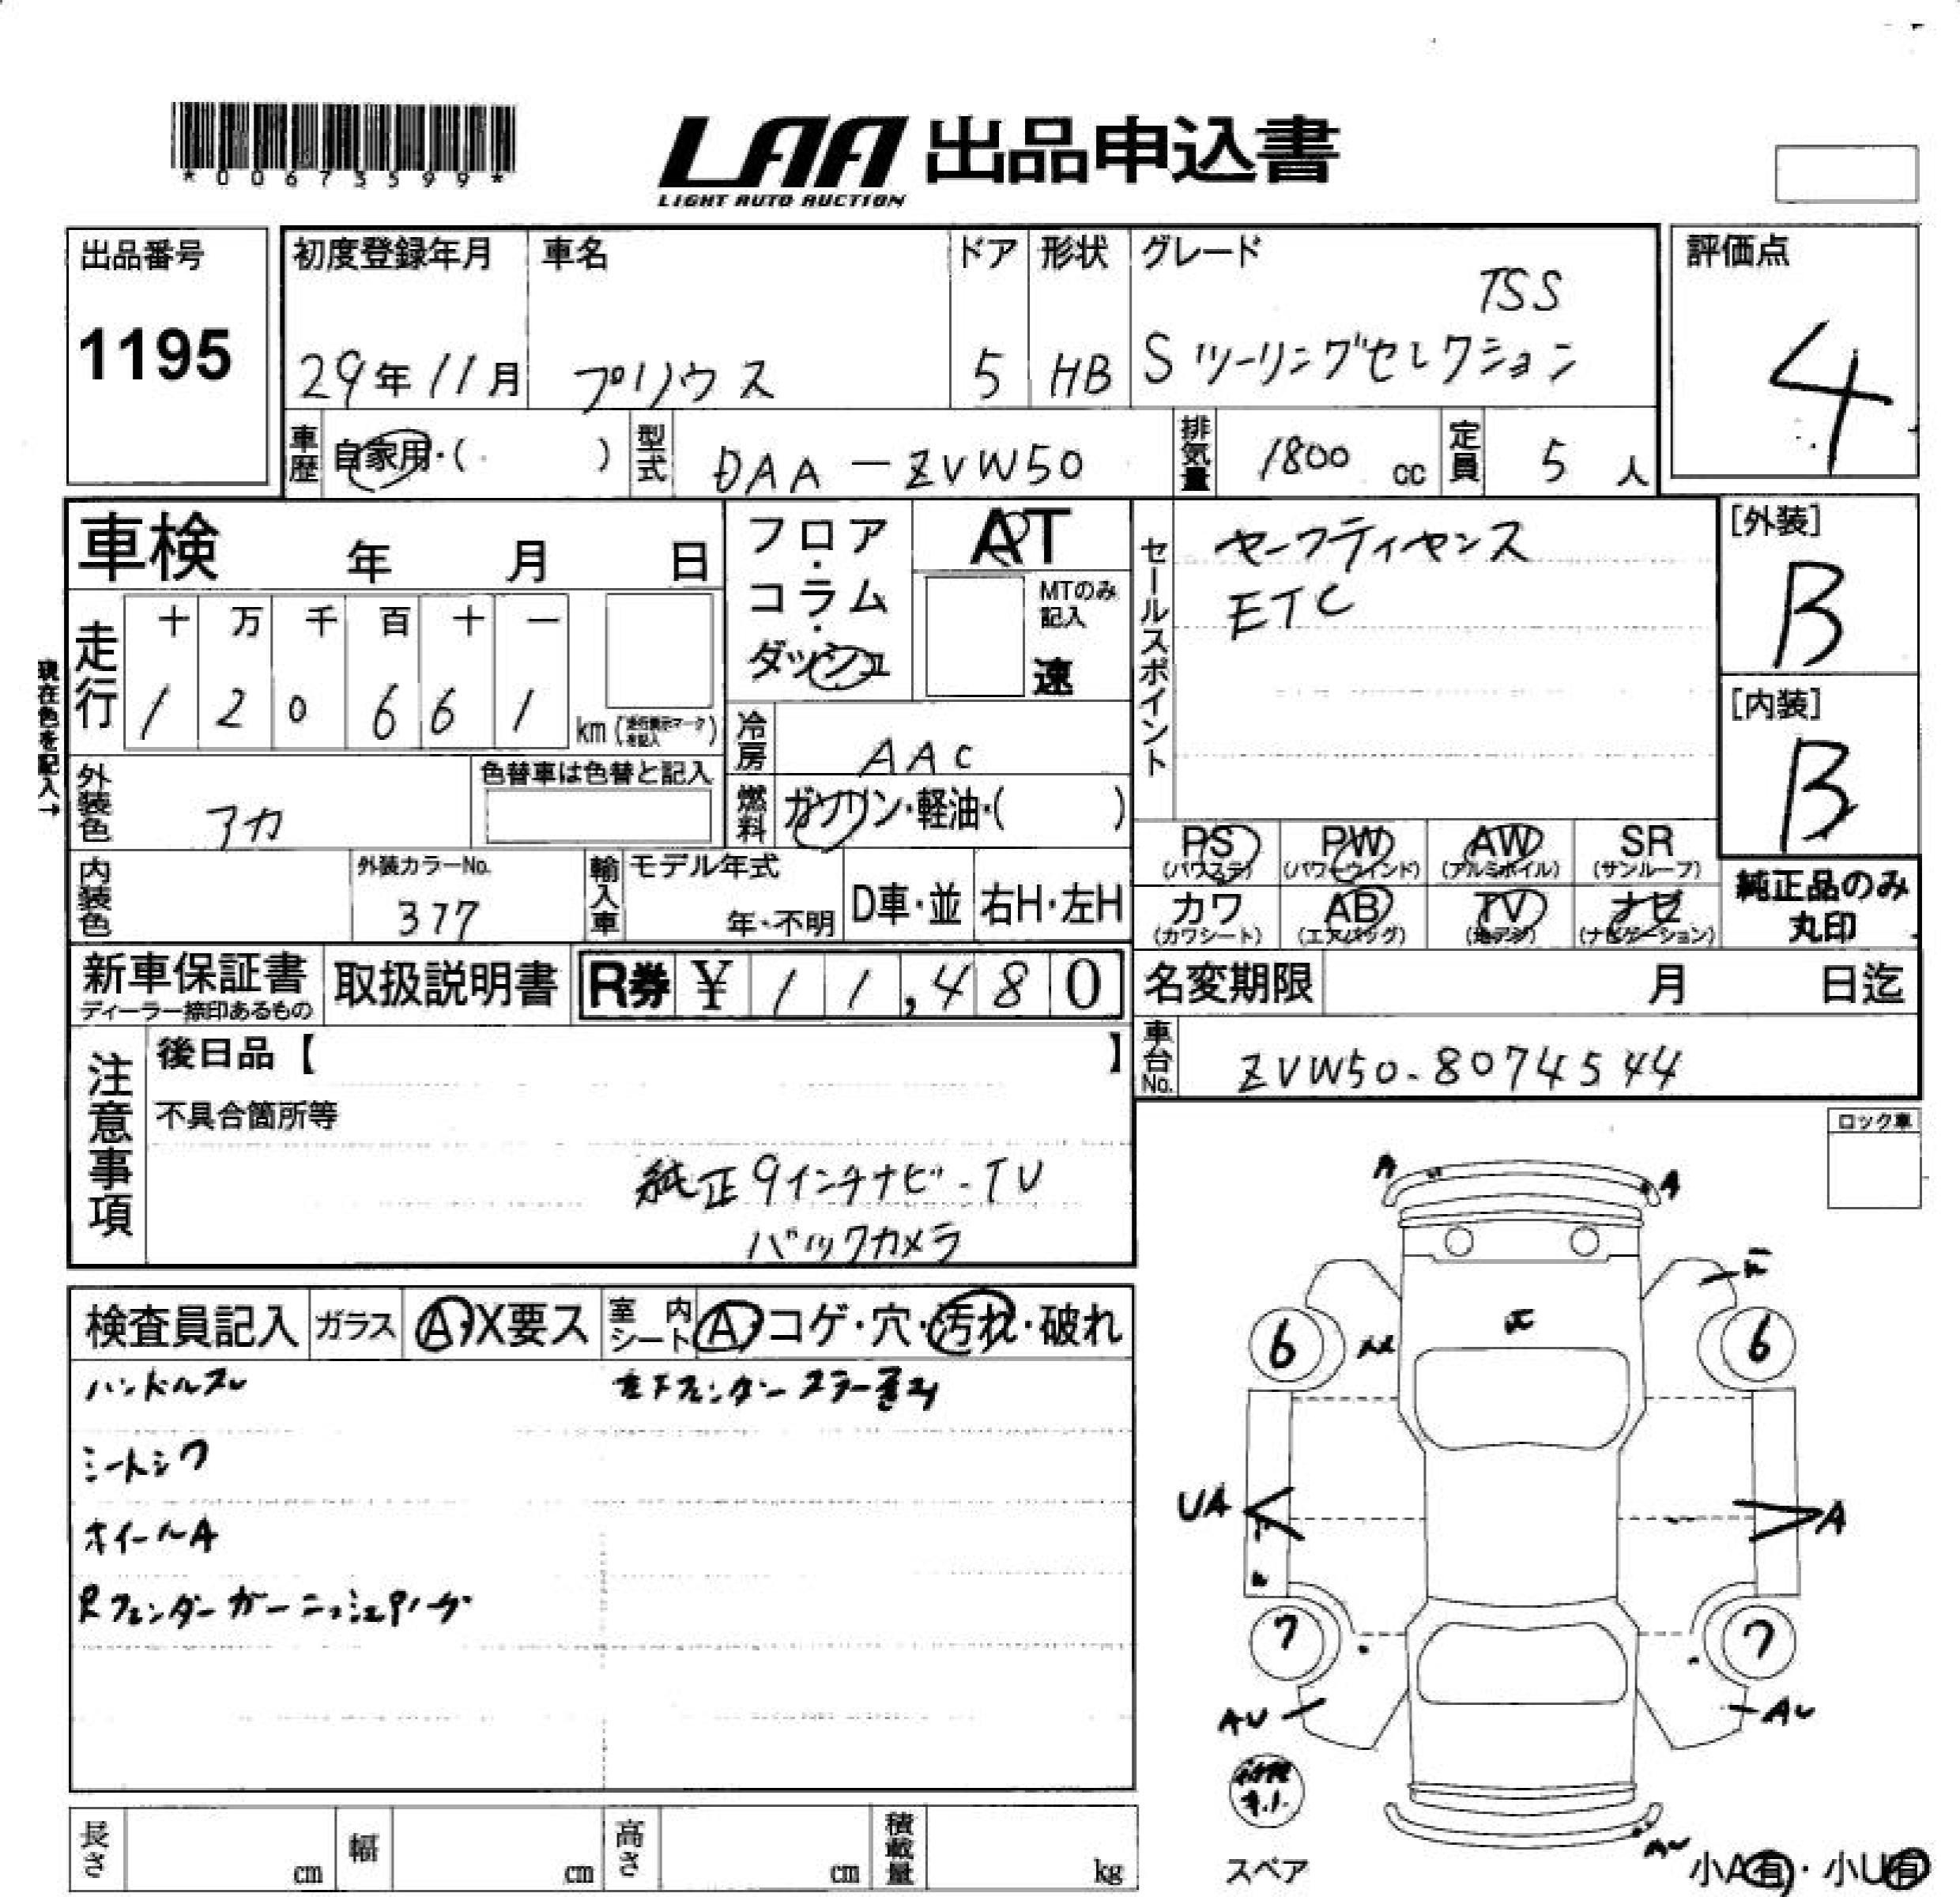 *00673599*
LAA 出品申込書
LIGHT AUTO AUCTION
出品番号
1195
初度登録年月
29年11月
車名
プリウス
ドア
5
形状
HB
グレード
TSS
Sツーリングセレクション
評価点
4
車歴
自家用・( )
型式
DAA-ZVW50
排気量
1800 cc
定員
5 人
車検 年 月 日
走行
十 万 千 百 十 一
1 2 0 6 6 1 km
現在色を記入→
フロア・コラム・ダッシュ
AT
MTのみ記入
速
冷房
AAC
燃料
ガソリン・軽油・( )
セールスポイント
セーフティセンス
ETC
[外装]
B
[内装]
B
外装色
アカ
色替車は色替と記入
内装色
外装カラーNo.
377
輸入車
モデル年式
年・不明
D車・並
右H・左H
PS
(パワステ)
PW
(パワーウインド)
AW
(アルミホイル)
SR
(サンルーフ)
カワ
(カワシート)
AB
(エアバッグ)
TV
(地デジ)
ナビ
(ナビゲーション)
純正品のみ
丸印
新車保証書
ディーラー捺印あるもの
取扱説明書
R券 ¥ 11,480
名変期限 月 日迄
車台No.
ZVW50-8074544
注意事項
後日品【 】
不具合箇所等
純正9インチナビ-TV
バックカメラ
ロック車
検査員記入
ガラス
A・X要ス
室内シート
A・コゲ・穴・汚れ・破れ
ハンドルスレ
シートシワ
ホイールA
Rフェンダーガーニッシュ
A
A
6
6
UA
A
7
7
AU
AU
スペア
小A有・小U有
長さ cm
幅 cm
高さ cm
積載量 kg